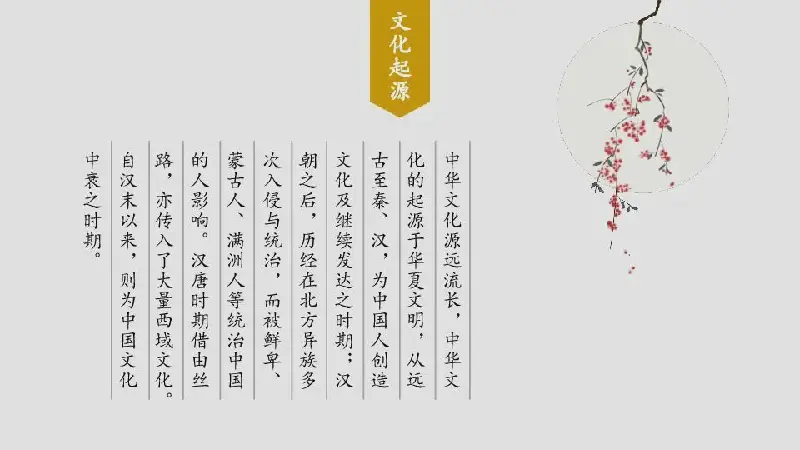 文化起源
中华文化源远流长，中华文
化的起源于华夏文明，从远
古至秦、汉，为中国人创造
文化及继续发达之时期；汉
朝之后，历经在北方异族多
次入侵与统治，而被鲜卑、
蒙古人、满洲人等统治中国
的人影响。汉唐时期借由丝
路，亦传入了大量西域文化。
自汉末以来，则为中国文化
中衰之时期。